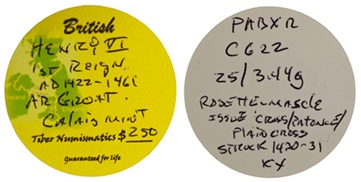 British
HENRY VI
1ST REIGN
AD 1422-1461
AR GROAT.
CALAIS MINT
Tiber Numismatics $250
Guaranteed for life
PABXR
C622
25/3.44g
ISSUE
PLAIN CROSS
STRUCK 1430-31